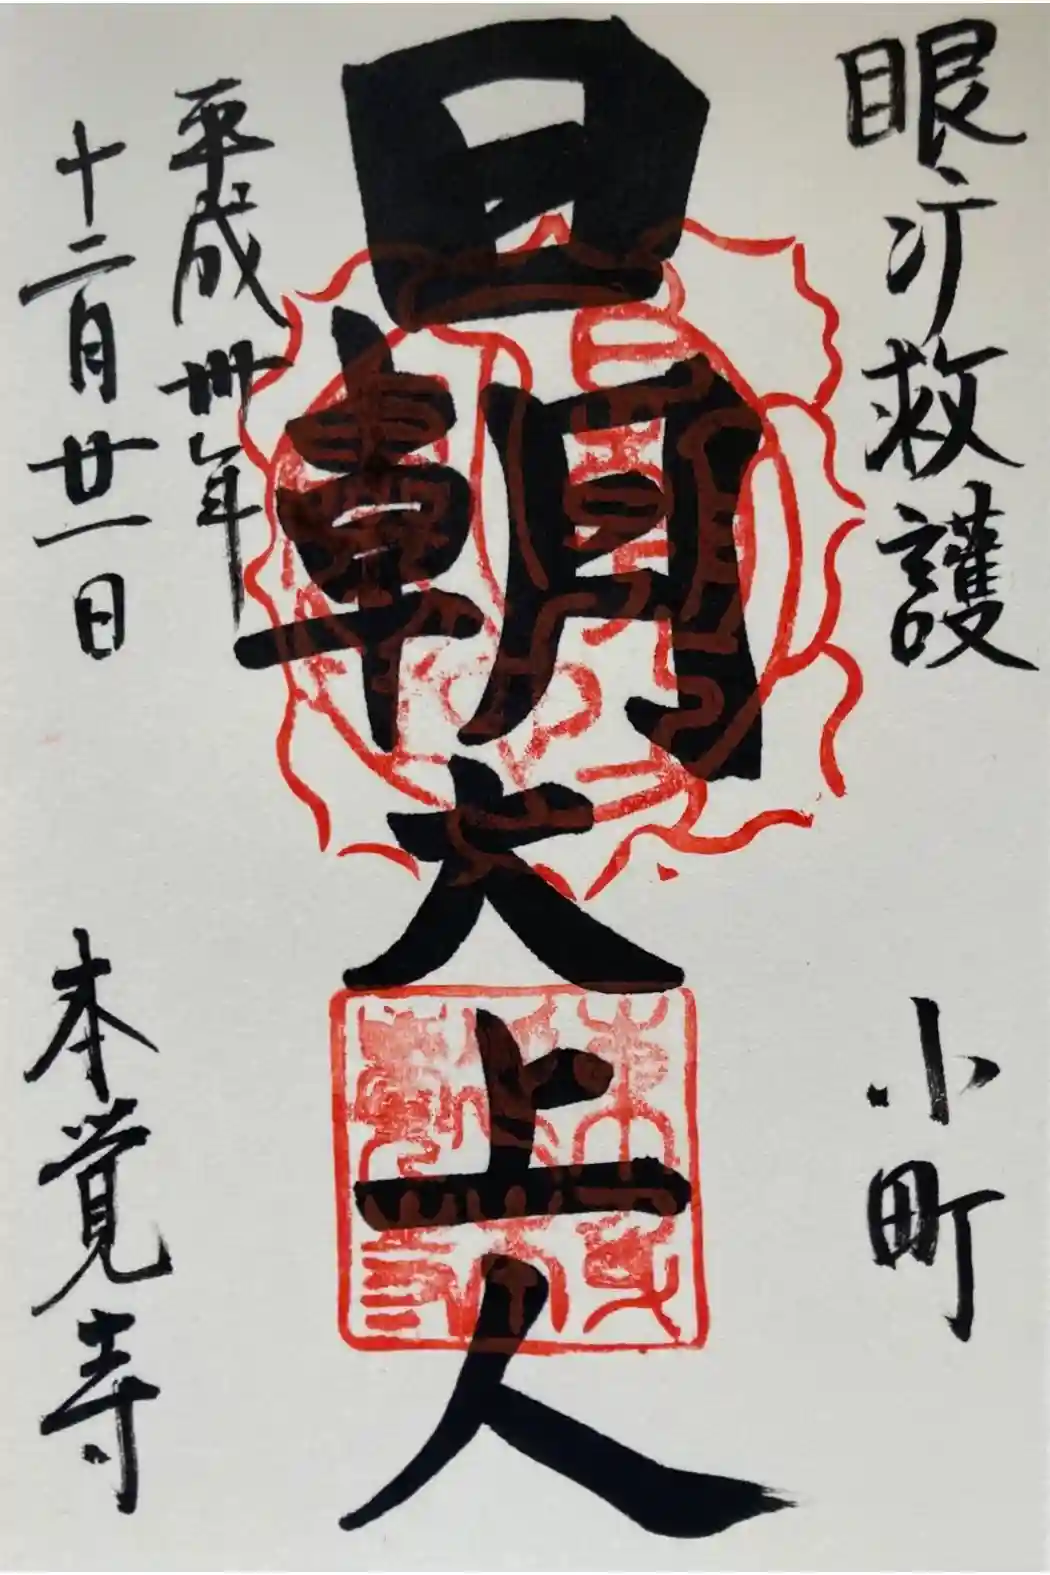 眼病救護
小町
日朝大上人
平成卅年
十二月廿一日
本覚寺